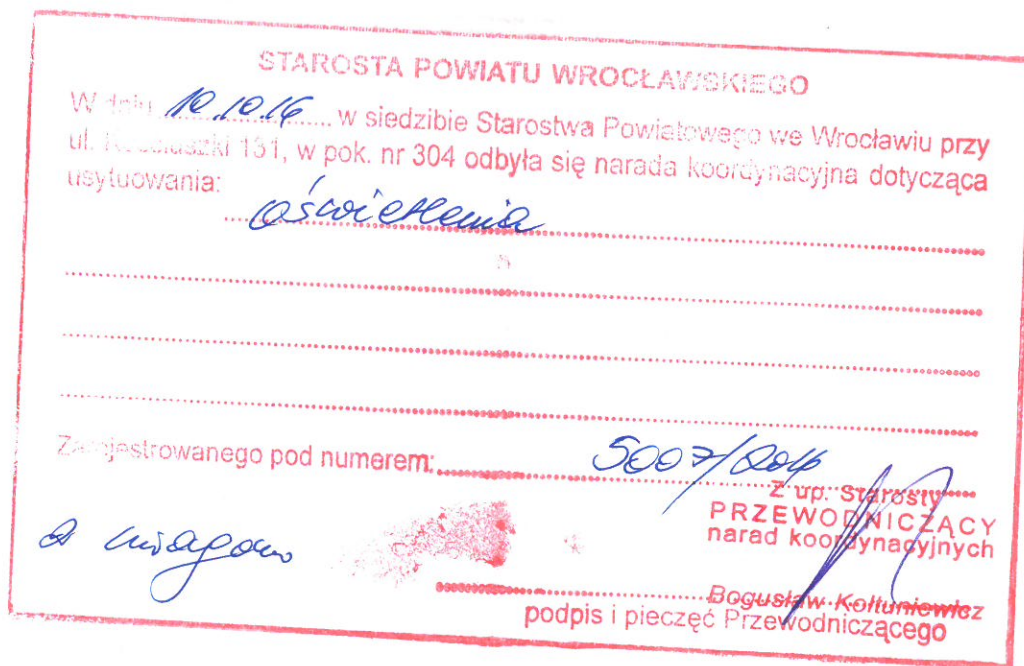 STAROSTA POWIATU WROCŁAWSKIEGO
W dniu 10.10.16 w siedzibie Starostwa Powiatowego we Wrocławiu przy
ul. Kościuszki 131, w pok. nr 304 odbyła się narada koordynacyjna dotycząca
usytuowania:
oświetlenia
Zarejestrowanego pod numerem: 5007/2016
Z up. Starosty
PRZEWODNICZĄCY
narad koordynacyjnych
Bogusław Kołtuniewicz
podpis i pieczęć Przewodniczącego